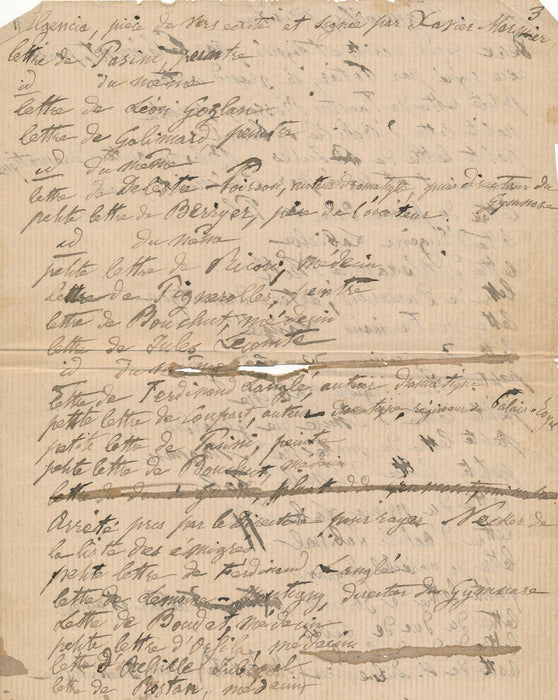 3
Algencia, pièce de vers écrite et signée par Xavier Marmier
lettre de Pasini, peintre
id du même
lettre de Léon Gozlan
lettre de Galimard peintre
id du même
lettre de Delestre-Poirson, auteur dramatique puis directeur du Gymnase
petite lettre de Berryer, père de l'orateur
id du même
petite lettre de Ricord, médecin
lettre de Pignerolles, peintre
lettre de Bouchut, médecin
lettre de Jules Lecomte
id du même
lettre de Ferdinand Langlé, auteur dramatique
petite lettre de Coupart, auteur dramatique, régisseur du Palais-Royal
petite lettre de Pasini, peintre
petite lettre de Bouchut, médecin
lettre du duc de
Arrêté pris par le Directoire pour rayer Necker de
la liste des émigrés
petite lettre de Ferdinand Langlé
lettre de Lemoine-Montigny, director du Gymnase
Lettre de Boudet, médecin
petite lettre d'Orfila, médecin
lettre d'Achille Jubinal
lettre de Rostan, médecin